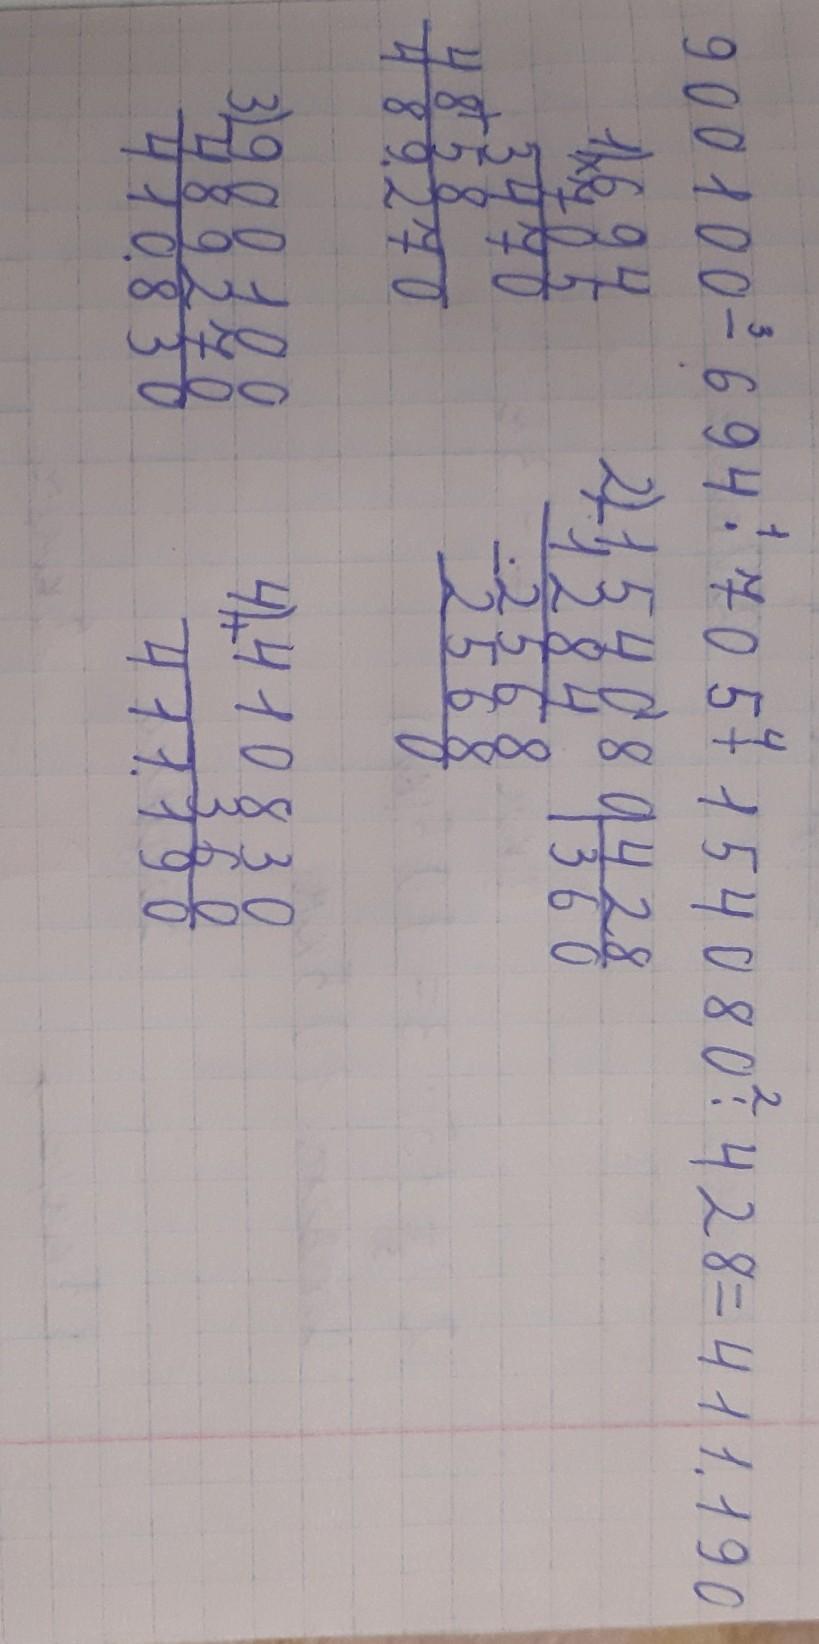 900100 -³ 694 :¹ 705 +⁴ 154080 :² 428 = 411.190
1) × 694
705
+ 3470
4858
489.270
2) - 154080 | 428
1284 | 360
- 2568
2568
0
3) - 900100
489270
410.830
4) + 410830
360
411.190